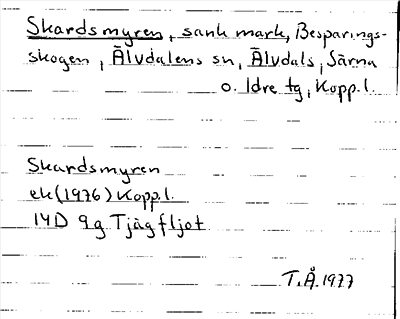 Skardsmyren, sank mark, Besparings-
skogen, Älvdalens sn, Älvdals, Särna
o. Idre tg, Kopp.l.
Skardsmyren
ek (1976) Kopp.l.
14D 9g Tjågfljot
T.Å. 1977